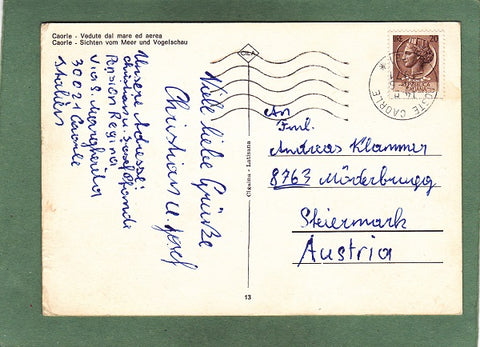 Caorle - Vedute dal mare ed aerea
Caorle - Sichten vom Meer und Vogelschau
Unsere Adresse:
Christian u. Josef
Pension Regina
Via S. Margherita
30021 Caorle
Italien
Viele liebe Grüße
Christian u. Josef
Cigaina - Latisana
13
20
POSTE CAORLE
An
Fml.
Andreas Klammer
8763 Möderbrugg
Steiermark
Austria